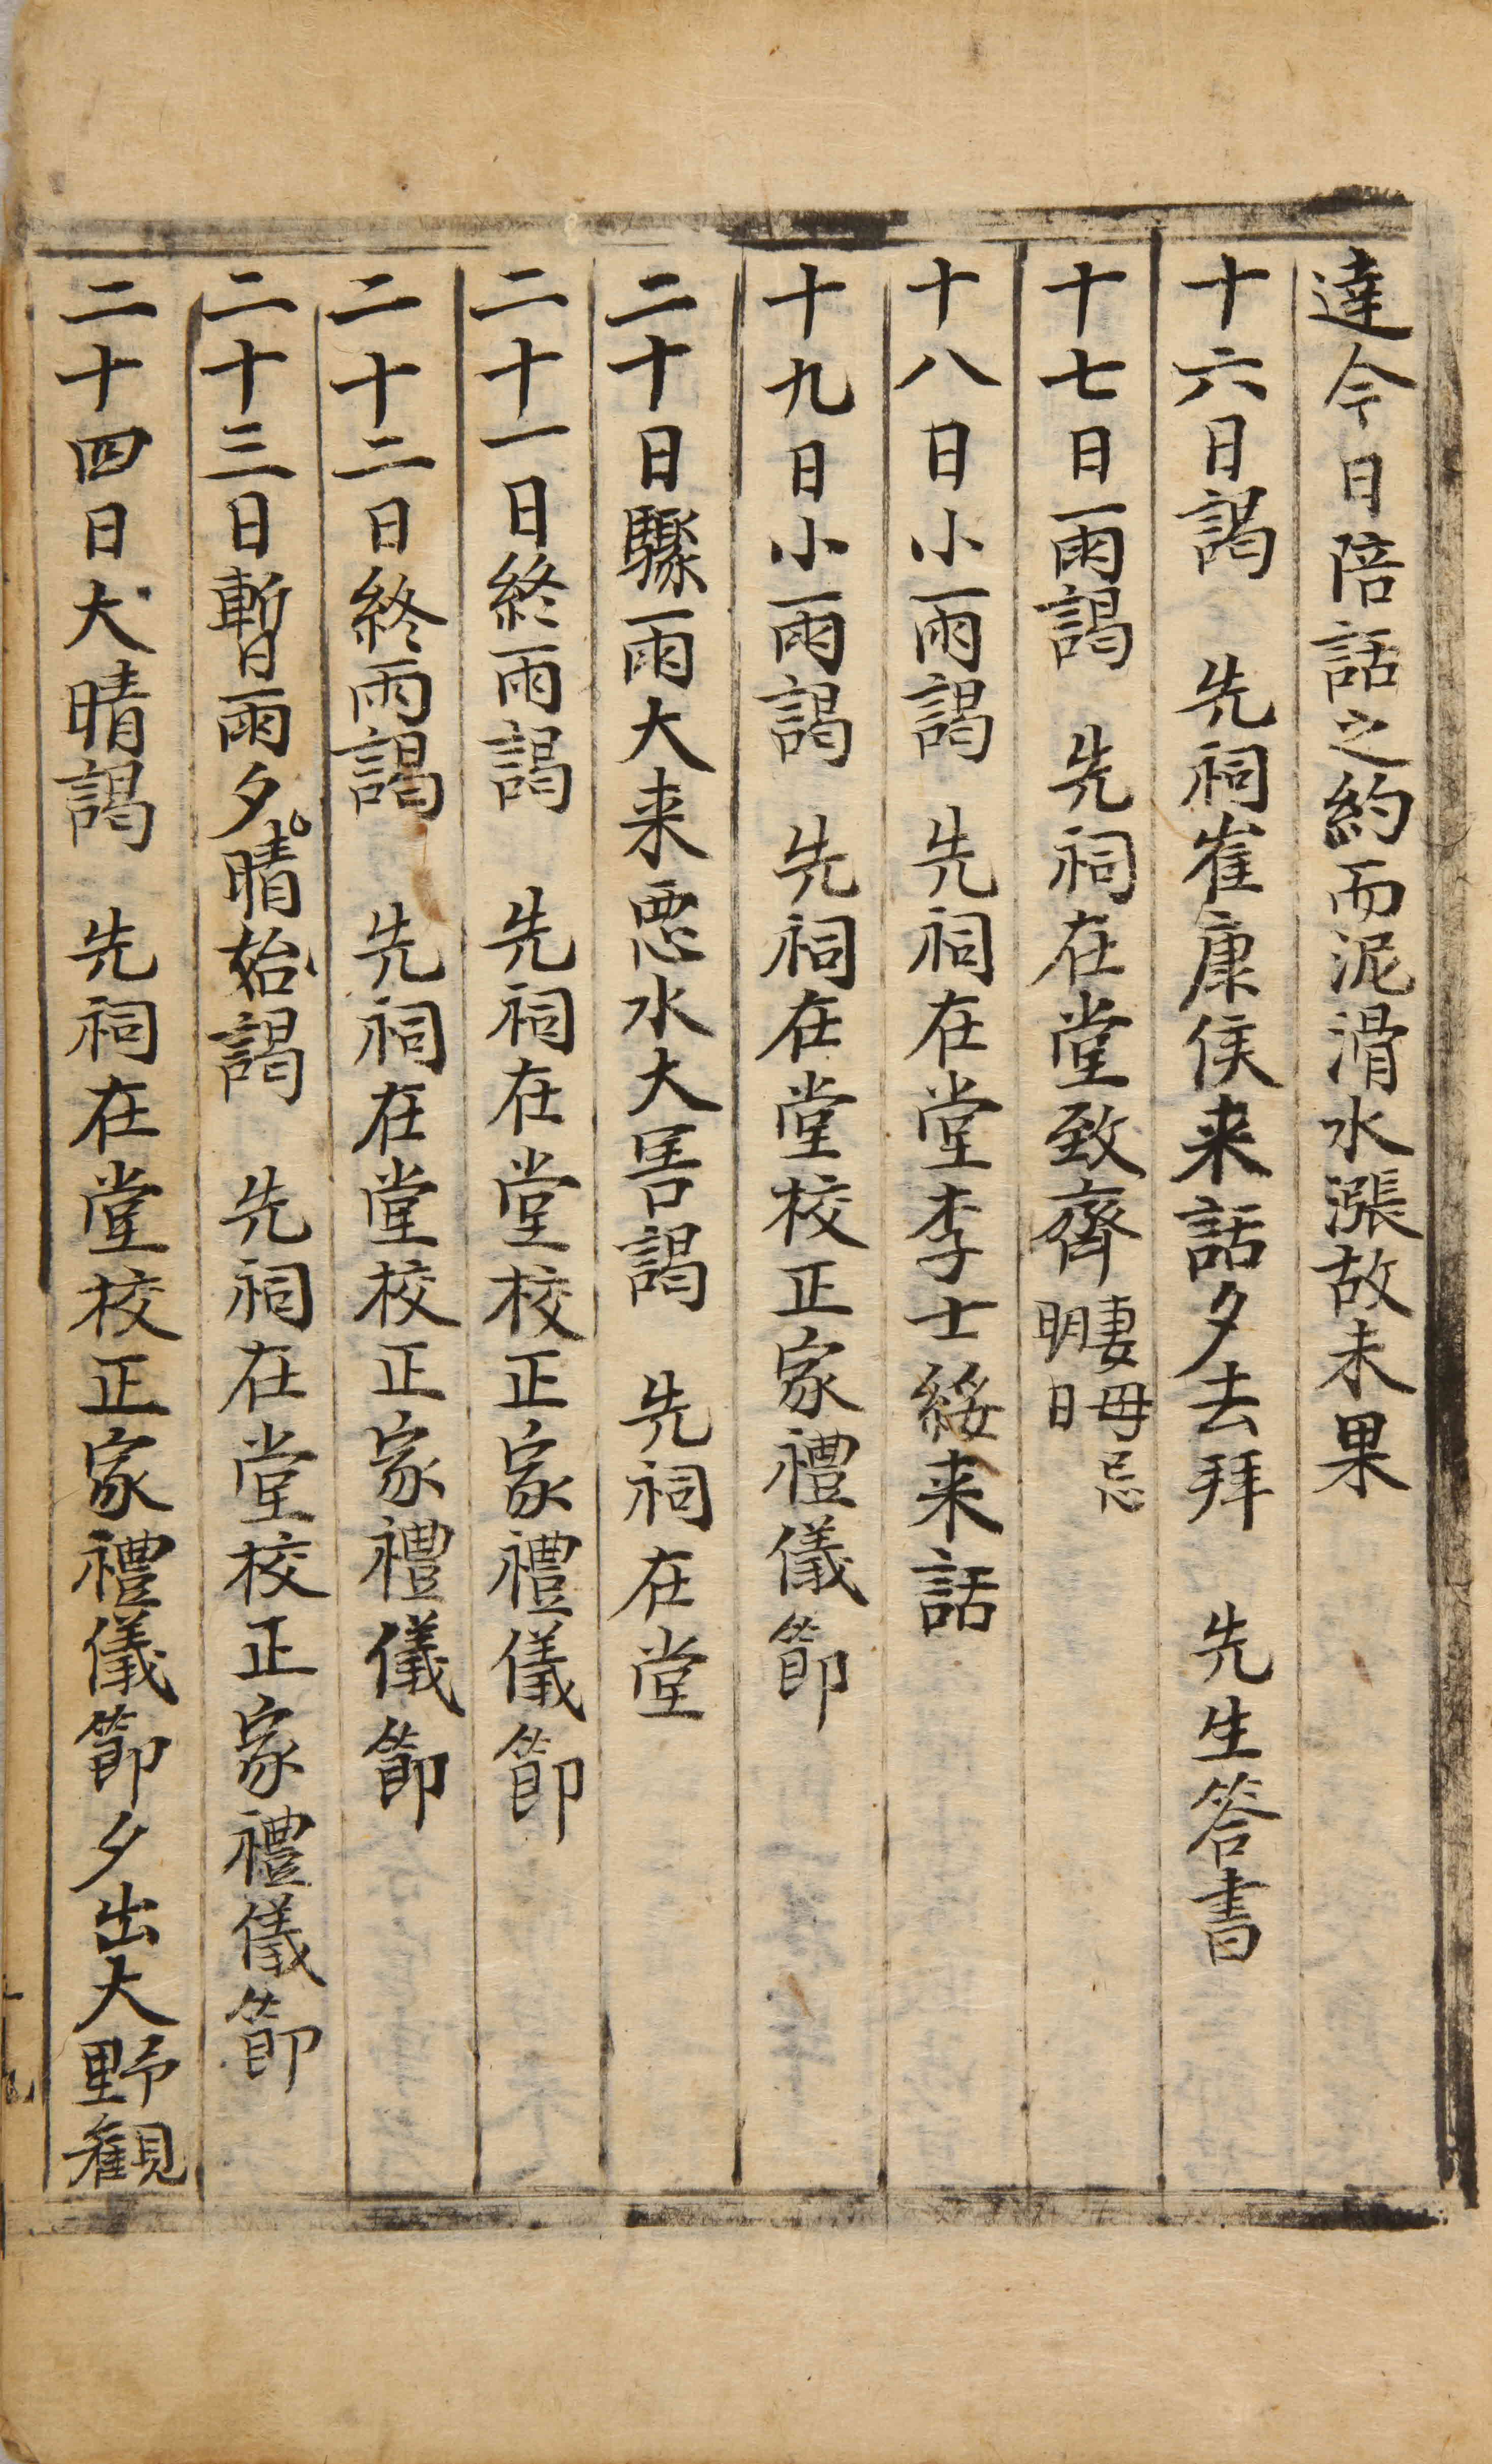 達今日陪話之約而泥滑水漲故未果
十六日謁　先祠崔康侯来話夕去拜　先生答書
十七日雨謁　先祠在堂致齊妻母忌明日
十八日小雨謁　先祠在堂李士綏来話
十九日小雨謁　先祠在堂校正家禮儀節
二十日驟雨大来惡水大害謁　先祠在堂
二十一日終雨謁　先祠在堂校正家禮儀節
二十二日終雨謁　先祠在堂校正家禮儀節
二十三日暫雨夕晴始謁　先祠在堂校正家禮儀節
二十四日大晴謁　先祠在堂校正家禮儀節夕出大野觀